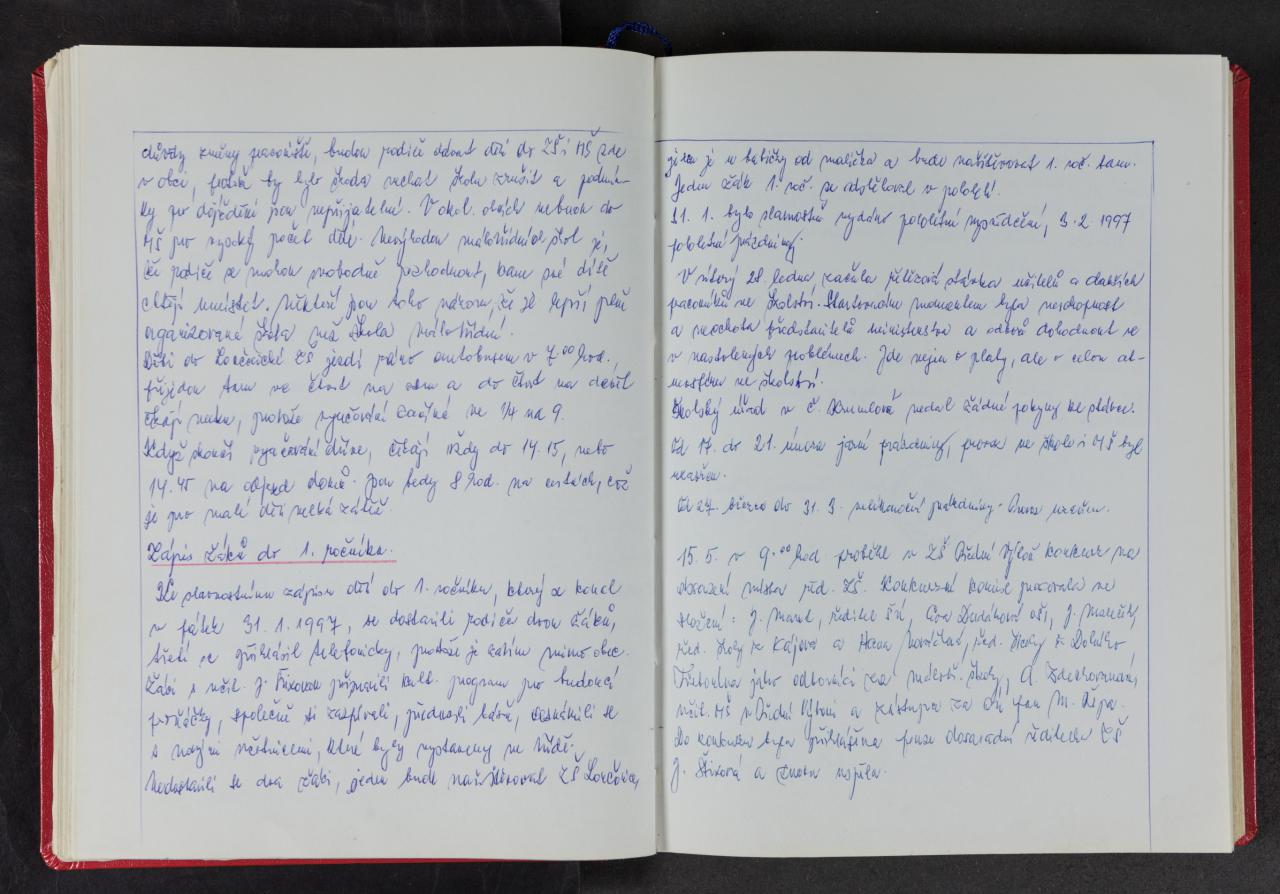 důvody změny pracoviště, budou rodiče dávat děti do ZŠ i MŠ zde
v obci, protože by bylo škoda nechat školu zrušit a podmín-
ky pro dojíždění jsou nepřijatelné. V okol. obcích neberou do
MŠ pro vysoký počet dětí. Nevýhodou málotřídních škol je,
že rodiče se mohou svobodně rozhodnout, kam své dítě
chtějí umístit. Někteří jsou toho názoru, že je lepší plně
organizovaná škola než škola málotřídní.
Děti do Lovčické ZŠ jezdí ráno autobusem v 7.00 hod.,
přijedou tam ve čtvrt na osm a do čtvrt na devět
čekají venku, protože vyučování začíná ve 1/4 na 9.
Když skončí vyučování dříve, čekají vždy do 14.15, nebo
14.45 na odjezd domů. Jsou tedy 8 hod. na cestách, což
je pro malé děti velká zátěž.
Zápis žáků do 1. ročníku.
Ke slavnostnímu zápisu dětí do 1. ročníku, který se konal
v pátek 31.1.1997, se dostavili rodiče dvou žáků,
třetí se přihlásil telefonicky, protože je zatím mimo obec.
Žáci s učit. J. Fixovou připravili kult. program pro budoucí
prvňáčky, společně si zazpívali, přednesli básně, seznámili se
s novými věštnicemi, které byly vystaveny ve třídě.
Nedostavili se dva žáci, jeden bude navštěvovat ZŠ
jeden je u babičky od malička a bude navštěvovat 1. roč. tam.
Jeden žák 1. roč. se odstěhoval v pololetí.
31. 1. bylo slavnostně vydáno pololetní vysvědčení, 3.2 1997
pololetní prázdniny.
V úterý 28. ledna začala výstražná stávka učitelů a dalších
pracovníků ve školství. Startovním momentem byla neschopnost
a neochota představitelů ministerstva a odborů dohodnout se
v nastolených problémech. Jde nejen o platy, ale o celou at-
mosféru ve školství.
Školský úřad v Č. Krumlově nedal žádné pokyny ke stávce.
Od 17. do 21. února jarní prázdniny, provoz ve škole i MŠ byl
uzavřen.
Od 27. března do 31. 3. velikonoční prázdniny. Provoz uzavřen.
15. 5. v 9.00 hod proběhl v ZŠ Přední Výtoň konkurz na
obsazení místa řed. ZŠ. Konkurzní komise pracovala ve
složení: J. ředitel ŠÚ, Eva ČŠI, J.
řed. školy z Kájova a Hana řed. školy z Dolního
Třebonína jako odborníci za školy, A.
učit. MŠ v Přední Výtoni a zástupce za OÚ pan M. Řepa.
Do konkurzu byla přihlášena pouze dosavadní ředitelka ZŠ
J. a znovu uspěla.